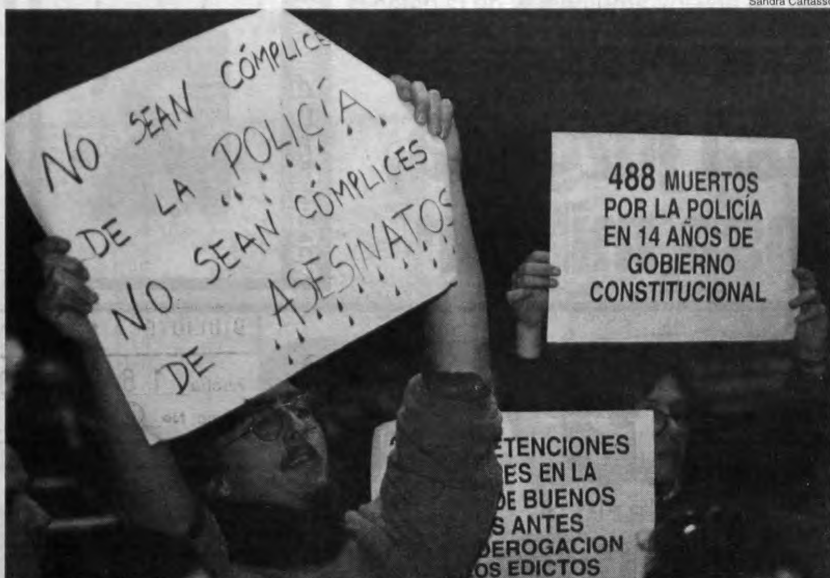 Sandra Cartasso
NO SEAN CÓMPLICE
DE LA POLICÍA
NO SEAN CÓMPLICES
DE ASESINATOS
488 MUERTOS
POR LA POLICÍA
EN 14 AÑOS DE
GOBIERNO
CONSTITUCIONAL
ETENCIONES
ES EN LA
DE BUENOS
S ANTES
DEROGACION
OS EDICTOS